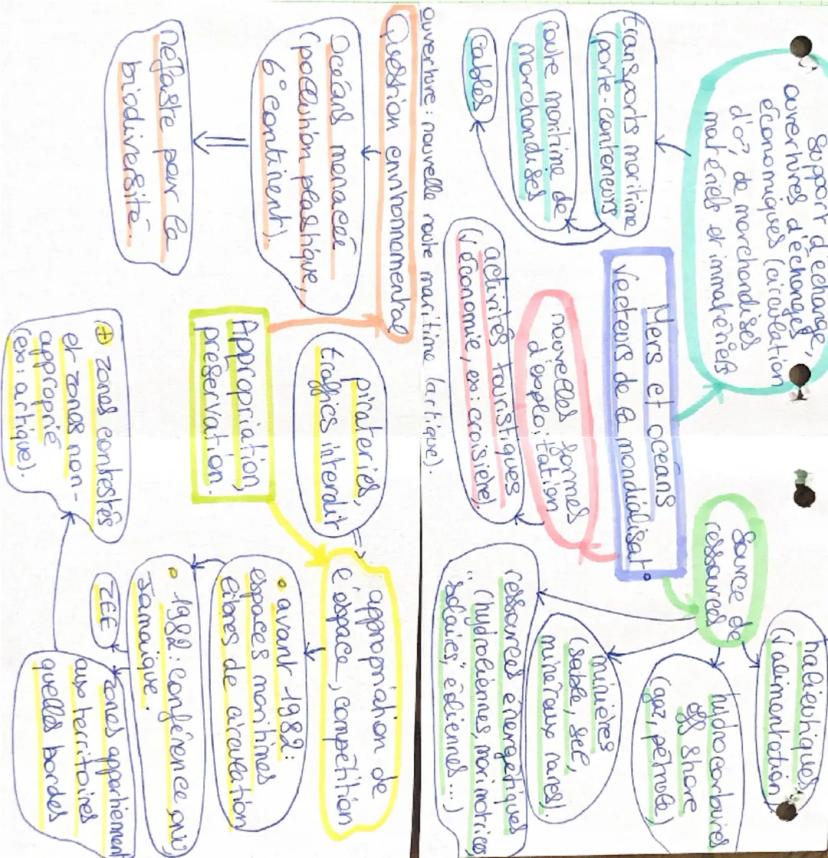 Support d'échange,
ouvertures d'échanges
économiques (circulation
d'or, de marchandises
matériels et immatériels
transports maritime
(porte-conteneurs
route maritime de
marchandises
Cables
Mers et océans
vecteurs de la mondialisat°
nouvelles formes
d'exploitation
activités touristiques
(économie, ex: croisière)
Source de
ressources
halieutiques,
(alimentation)
hydrocarbures
off share
(gaz, pétrole)
minières
(sable, sel,
minéraux rares).
ressources énergétiques
(hydroliennes, marimotrices
"solaires", éoliennes ...)
ouverture: nouvelle route maritime (artique).
Question environnemental
Océans menacée
(pollution plastique,
6° continent).
Néfaste pour la
biodiversité.
Appropriation,
préservation.
pirateries,
traffics interdit
appropriation de
l'espace, compétition
• avant 1982:
espaces maritimes
libres de circulation
• 1982: conférence
Jamaïque.
ZEE
zones appartiement
aux territoires
quelles bordes
+ zones contestés
et zones non-
approprié
(ex: artique).